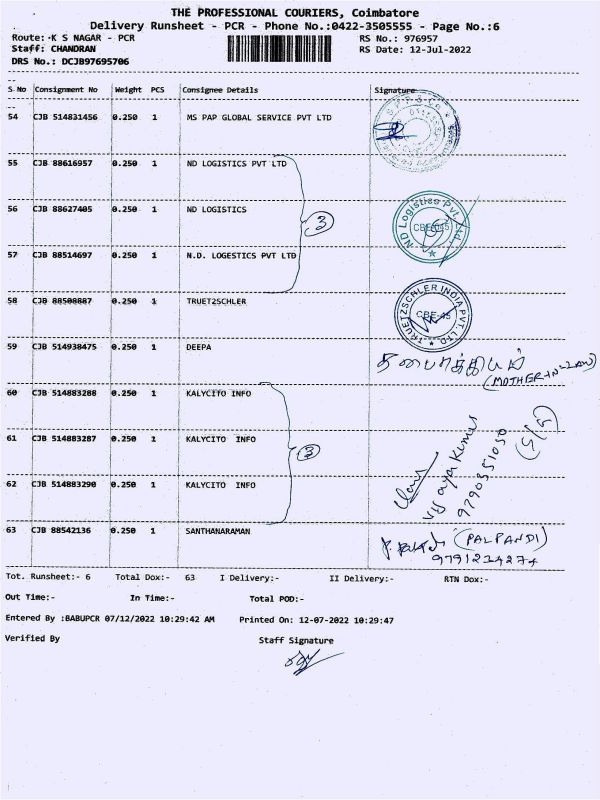 THE PROFESSIONAL COURIERS, Coimbatore
Delivery Runsheet - PCR - Phone No.:0422-3505555 - Page No.:6
Route:-K S NAGAR - PCR RS No.: 976957
Staff: CHANDRAN RS Date: 12-Jul-2022
DRS No.: DCJB97695706
S No Consignment No Weight PCS Consignee Details Signature
54 CJB 514831456 0.250 1 MS PAP GLOBAL SERVICE PVT LTD
55 CJB 88616957 0.250 1 ND LOGISTICS PVT LTD
56 CJB 88627405 0.250 1 ND LOGISTICS
3
ND Logistics Pvt. Ltd.
CBE-45
57 CJB 88514697 0.250 1 N.D. LOGESTICS PVT LTD
58 CJB 88508887 0.250 1 TRUET2SCHLER
TRUETZSCHLER INDIA PVT. LTD.
CBE-45
59 CJB 514938475 0.250 1 DEEPA
(MOTHER-IN-LAW)
60 CJB 514883288 0.250 1 KALYCITO INFO
61 CJB 514883287 0.250 1 KALYCITO INFO
3
Vijayakumar
9790351050
62 CJB 514883290 0.250 1 KALYCITO INFO
63 CJB 88542136 0.250 1 SANTHANARAMAN
(PALPANDI)
9791234274
Tot. Runsheet:- 6 Total Dox:- 63 I Delivery:- II Delivery:- RTN Dox:-
Out Time:- In Time:- Total POD:-
Entered By :BABUPCR 07/12/2022 10:29:42 AM Printed On: 12-07-2022 10:29:47
Verified By Staff Signature